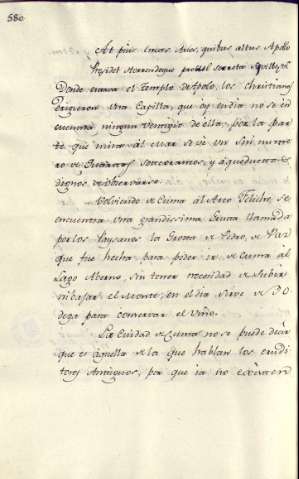 580.
At pius Eneas Arces, quibus altus Apolo
Presidet
Donde estava el Templo de Apolo, los christianos
erigieron una Capilla, que oy endia no se en
cuentra ningun vestigio de ella, por la par
te que mira al mar se ve un nume
ro de y aqueductos
dignos de observarse.
Volviendo de Cuma al Arco Felichi, se
encuentra una grandissima Gruta llamada
por los Paysanos la Grotta de Pedro, de Paz
que fue hecha para poder ir de Cuma al
Lago Averno, sin tener necesidad de subir
ni bajar el Monte, en el dia sirve de Bo
dega para conservar el Vino.
La Ciudad de Cuma no se puede decir
que es aquella de la que hablan los erudi
tores Antiguos, por que ia no existen